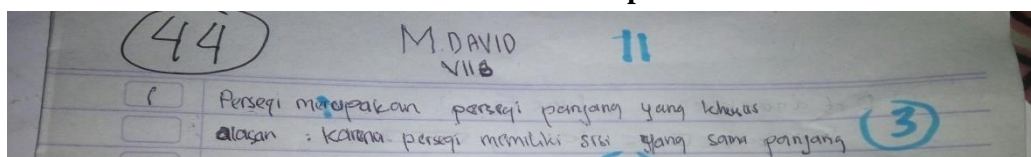 44
M. DAVID 11
VII B
1 Persegi merupakan persegi panjang yang khusus
alasan : Karena persegi memiliki sisi yang sama panjang 3